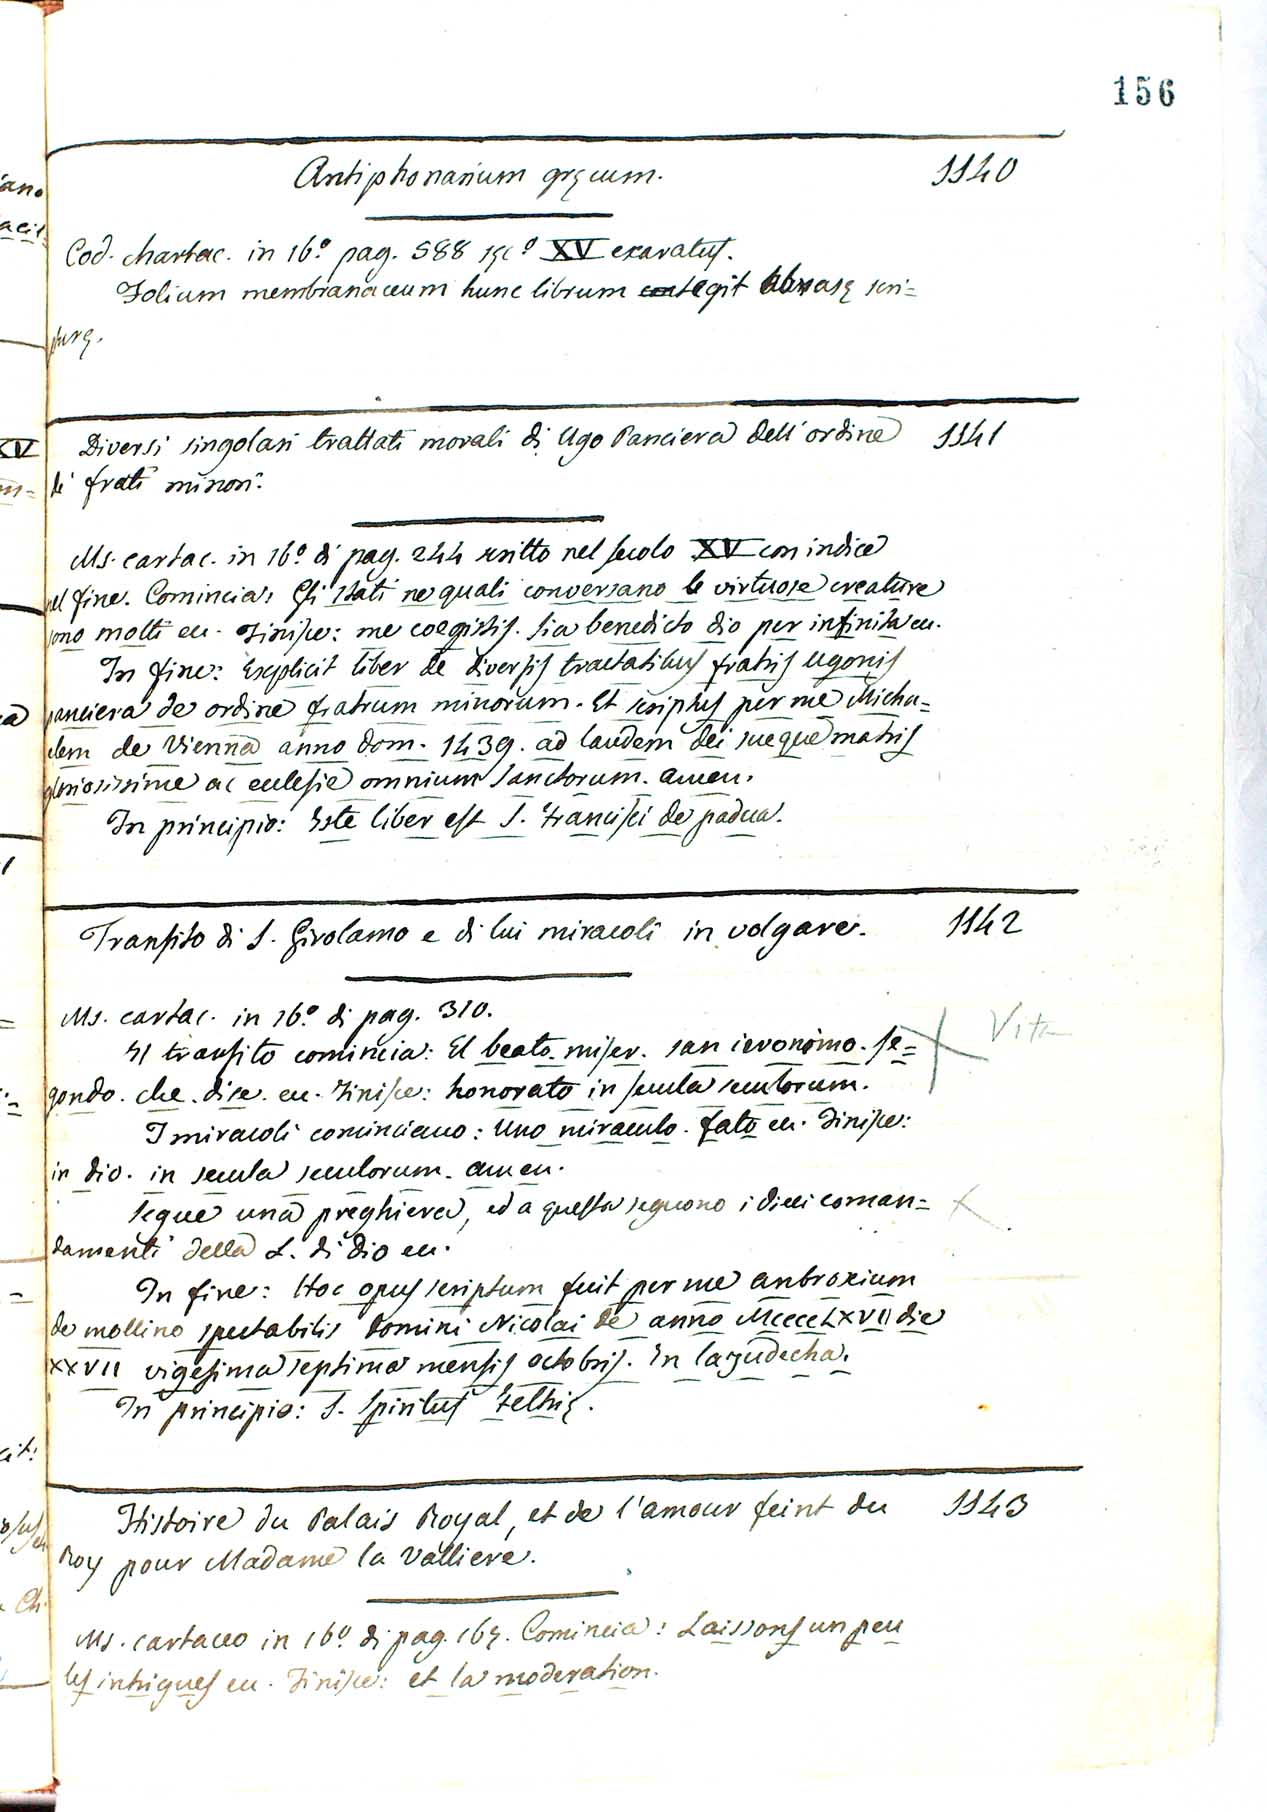 156
Antiphonarium gręcum. 1140
Cod. chartac. in 16.º pag. 588 sęc.º XV exaratus.
Folium membranaceum hunc librum tegit abrasę scri=
pturę.
Diversi singolari trattati morali di Ugo Panciera dell'ordine 1141
de' frati minori.
Ms. cartac. in 16.º di pag. 244 scritto nel secolo XV con indice
nel fine. Comincia: Gli stati ne quali conversano le virtuose creature
sono molti ec. Finisce: me coegistis. sia benedicto dio per infinita ec.
In fine: Explicit liber de diversis tractatibus fratris ugonis
panciera de ordine fratrum minorum. Et scriptus per me Micha=
elem de Vienna anno dom. 1439. ad laudem dei sueque matris
gloriosissime ac ecclesie omnium sanctorum. amen.
In principio: Iste liber est S. Francisci de padua.
Transito di S. Girolamo e di lui miracoli in volgare. 1142
Ms. cartac. in 16.º di pag. 310.
Il transito comincia: El beato. miser. san ieronimo. se= Vita
gondo. che. dise. ec. Finisce: honorato in secula seculorum.
I miracoli cominciano: Uno miraculo. fato ec. Finisce:
in dio. in secula seculorum. amen.
Segue una preghiera, ed a questa seguono i dieci coman=
damenti della L. di Dio ec.
In fine: Hoc opus scriptum fuit per me anbroxium
de mollino spectabilis domini Nicolai de anno MccccLxvII die
xxvII vigesima septima mensis octobris. In la zudecha.
In principio: S. Spiritus Feltrię.
Histoire du Palais Royal, et de l'amour feint du 1143
Roy pour Madame la Valliere.
Ms. cartaceo in 16.º di pag. Comincia: Laissons un peu
les intrigues ec. Finisce: et la moderation.